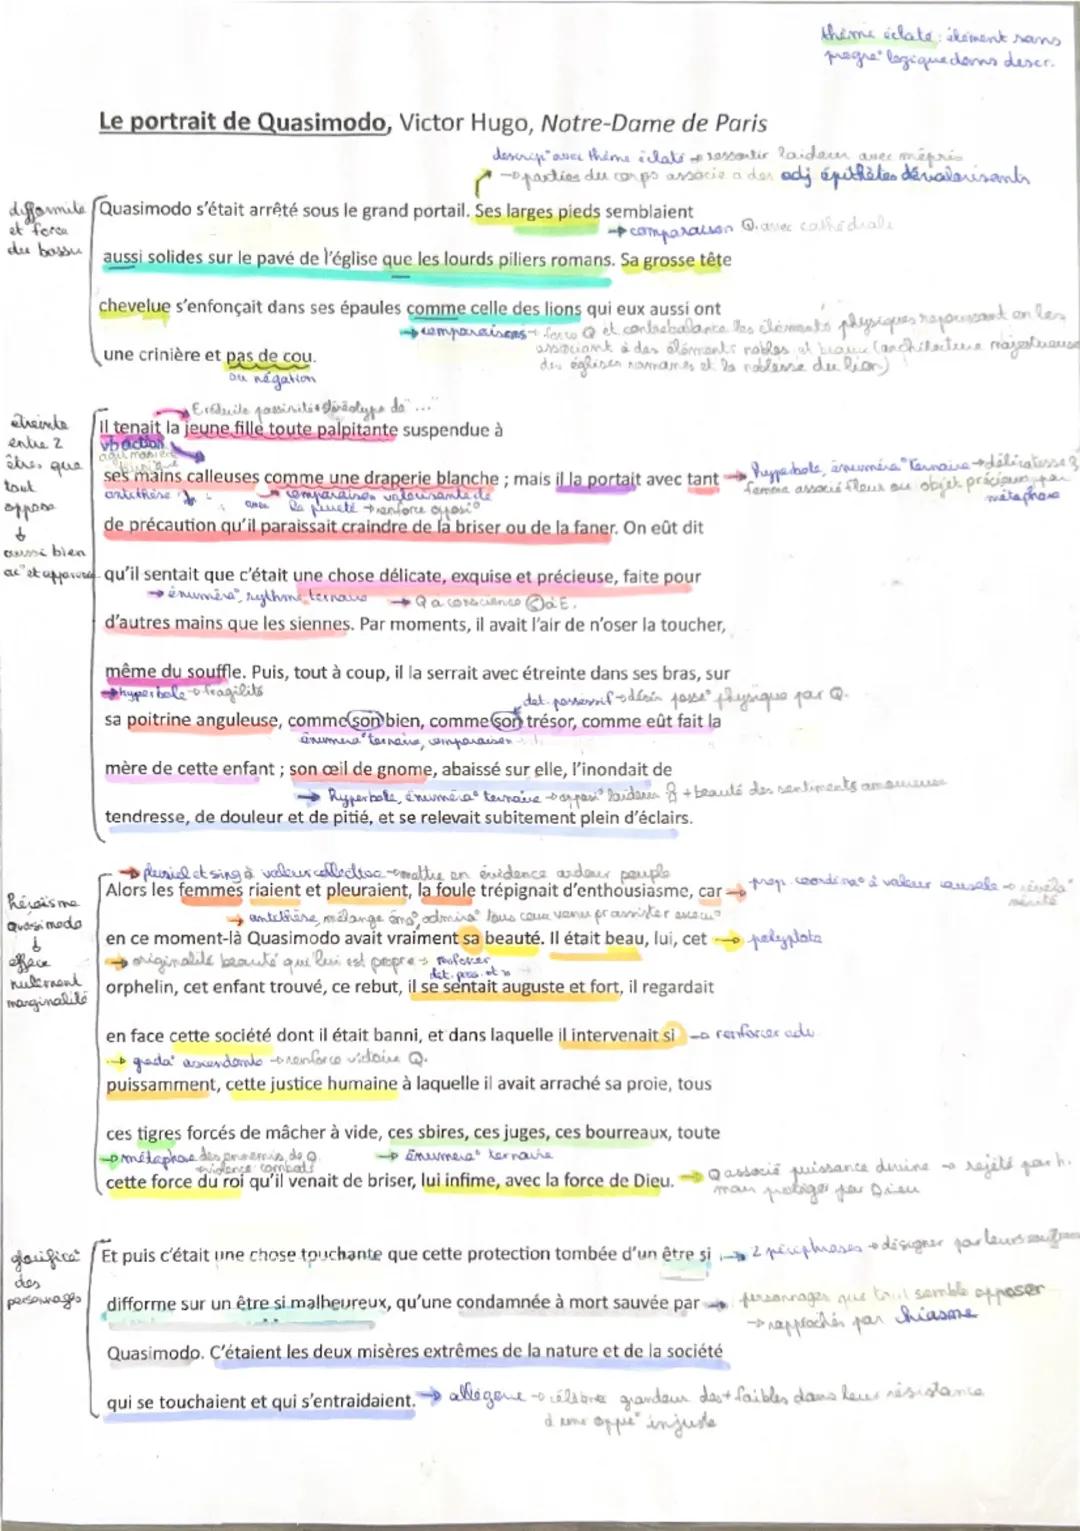 thème éclaté : élément sans
progre° logique dans descr.
Le portrait de Quasimodo, Victor Hugo, Notre-Dame de Paris
descrip° avec thème éclaté → ressortir laideur avec mépris
→ parties du corps associé a des adj épithètes dévalorisants
difformité
et force
du bossu
Quasimodo s'était arrêté sous le grand portail. Ses larges pieds semblaient
→ comparaison Q. avec cathédrale
aussi solides sur le pavé de l'église que les lourds piliers romans. Sa grosse tête
chevelue s'enfonçait dans ses épaules comme celle des lions qui eux aussi ont
→ comparaisons → force Q et contrebalance les éléments physiques repoussant en les
associant à des éléments nobles et beaux (architecture majestueuse
des églises romanes et la noblesse du lion)
une crinière et pas de cou.
ou négation
étreinte
entre 2
êtres que
tout
oppose
↓
aussi bien
ac° et apparence
Il tenait la jeune fille toute palpitante suspendue à
vb action
ses mains calleuses comme une draperie blanche ; mais il la portait avec tant
→ hyperbole, énuméra° ternaire → délicatesse
femme associé fleur ou objet précieux par
métaphore
antithèse
comparaison valorisante de
la pureté → renforce opposi°
de précaution qu'il paraissait craindre de la briser ou de la faner. On eût dit
qu'il sentait que c'était une chose délicate, exquise et précieuse, faite pour
→ énuméra°, rythme ternaire → Q a conscience
d'autres mains que les siennes. Par moments, il avait l'air de n'oser la toucher,
même du souffle. Puis, tout à coup, il la serrait avec étreinte dans ses bras, sur
→ hyperbole → fragilité
det. possessif → désir posse° physique par Q.
sa poitrine anguleuse, comme son bien, comme son trésor, comme eût fait la
énuméra° ternaire, comparaison
mère de cette enfant ; son œil de gnome, abaissé sur elle, l'inondait de
→ Hyperbole, énuméra° ternaire → opposi° laideur + beauté des sentiments amoureux
tendresse, de douleur et de pitié, et se relevait subitement plein d'éclairs.
→ pluriel et sing à valeur collective → mettre en évidence ardeur peuple
héroïsme
Quasimodo
↓
efface
nullement
marginalité
Alors les femmes riaient et pleuraient, la foule trépignait d'enthousiasme, car
→ prop. coordina° à valeur causale → révéla°
→ antithèse, mélange émo°, admira°
en ce moment-là Quasimodo avait vraiment sa beauté. Il était beau, lui, cet → polyptote
→ originalité beauté qui lui est propre → renforcer
orphelin, cet enfant trouvé, ce rebut, il se sentait auguste et fort, il regardait
en face cette société dont il était banni, et dans laquelle il intervenait si → renforcer adv
→ grada° ascendante → renforce victoire Q.
puissamment, cette justice humaine à laquelle il avait arraché sa proie, tous
ces tigres forcés de mâcher à vide, ces sbires, ces juges, ces bourreaux, toute
→ métaphore des ennemis de Q
violence combats
→ énuméra° ternaire
cette force du roi qu'il venait de briser, lui infime, avec la force de Dieu.
→ Q associé puissance divine → rejeté par h.
mais protéger par Dieu
glorifica°
des
personnages
Et puis c'était une chose touchante que cette protection tombée d'un être si
→ 2 périphrases → désigner par leurs
difforme sur un être si malheureux, qu'une condamnée à mort sauvée par
→ personnages que tout semble opposer
→ rapprochés par chiasme
Quasimodo. C'étaient les deux misères extrêmes de la nature et de la société
qui se touchaient et qui s'entraidaient.
→ allégorie → célèbre grandeur des + faibles dans leur résistance
à une oppre° injuste